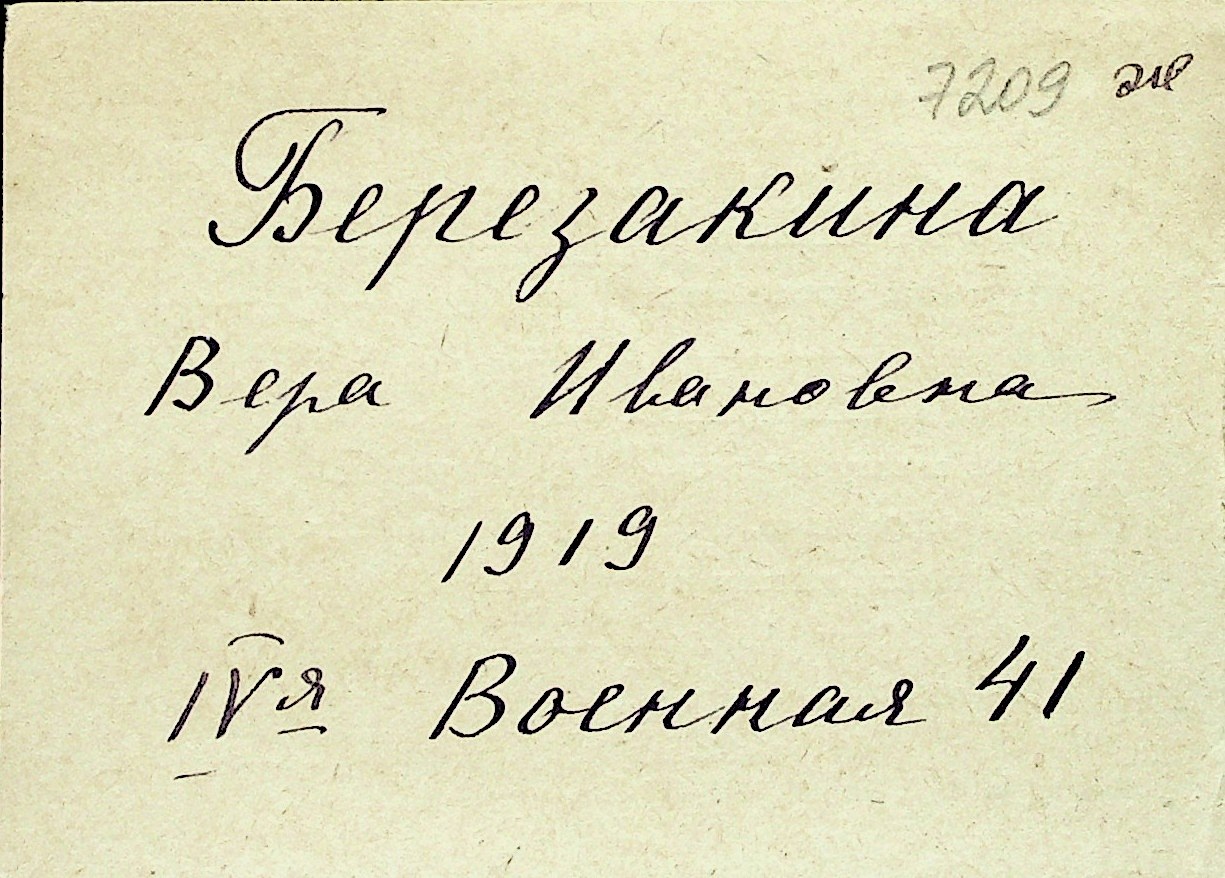 7209 эк
Березакина
Вера Ивановна
1919
IVя Военная 41